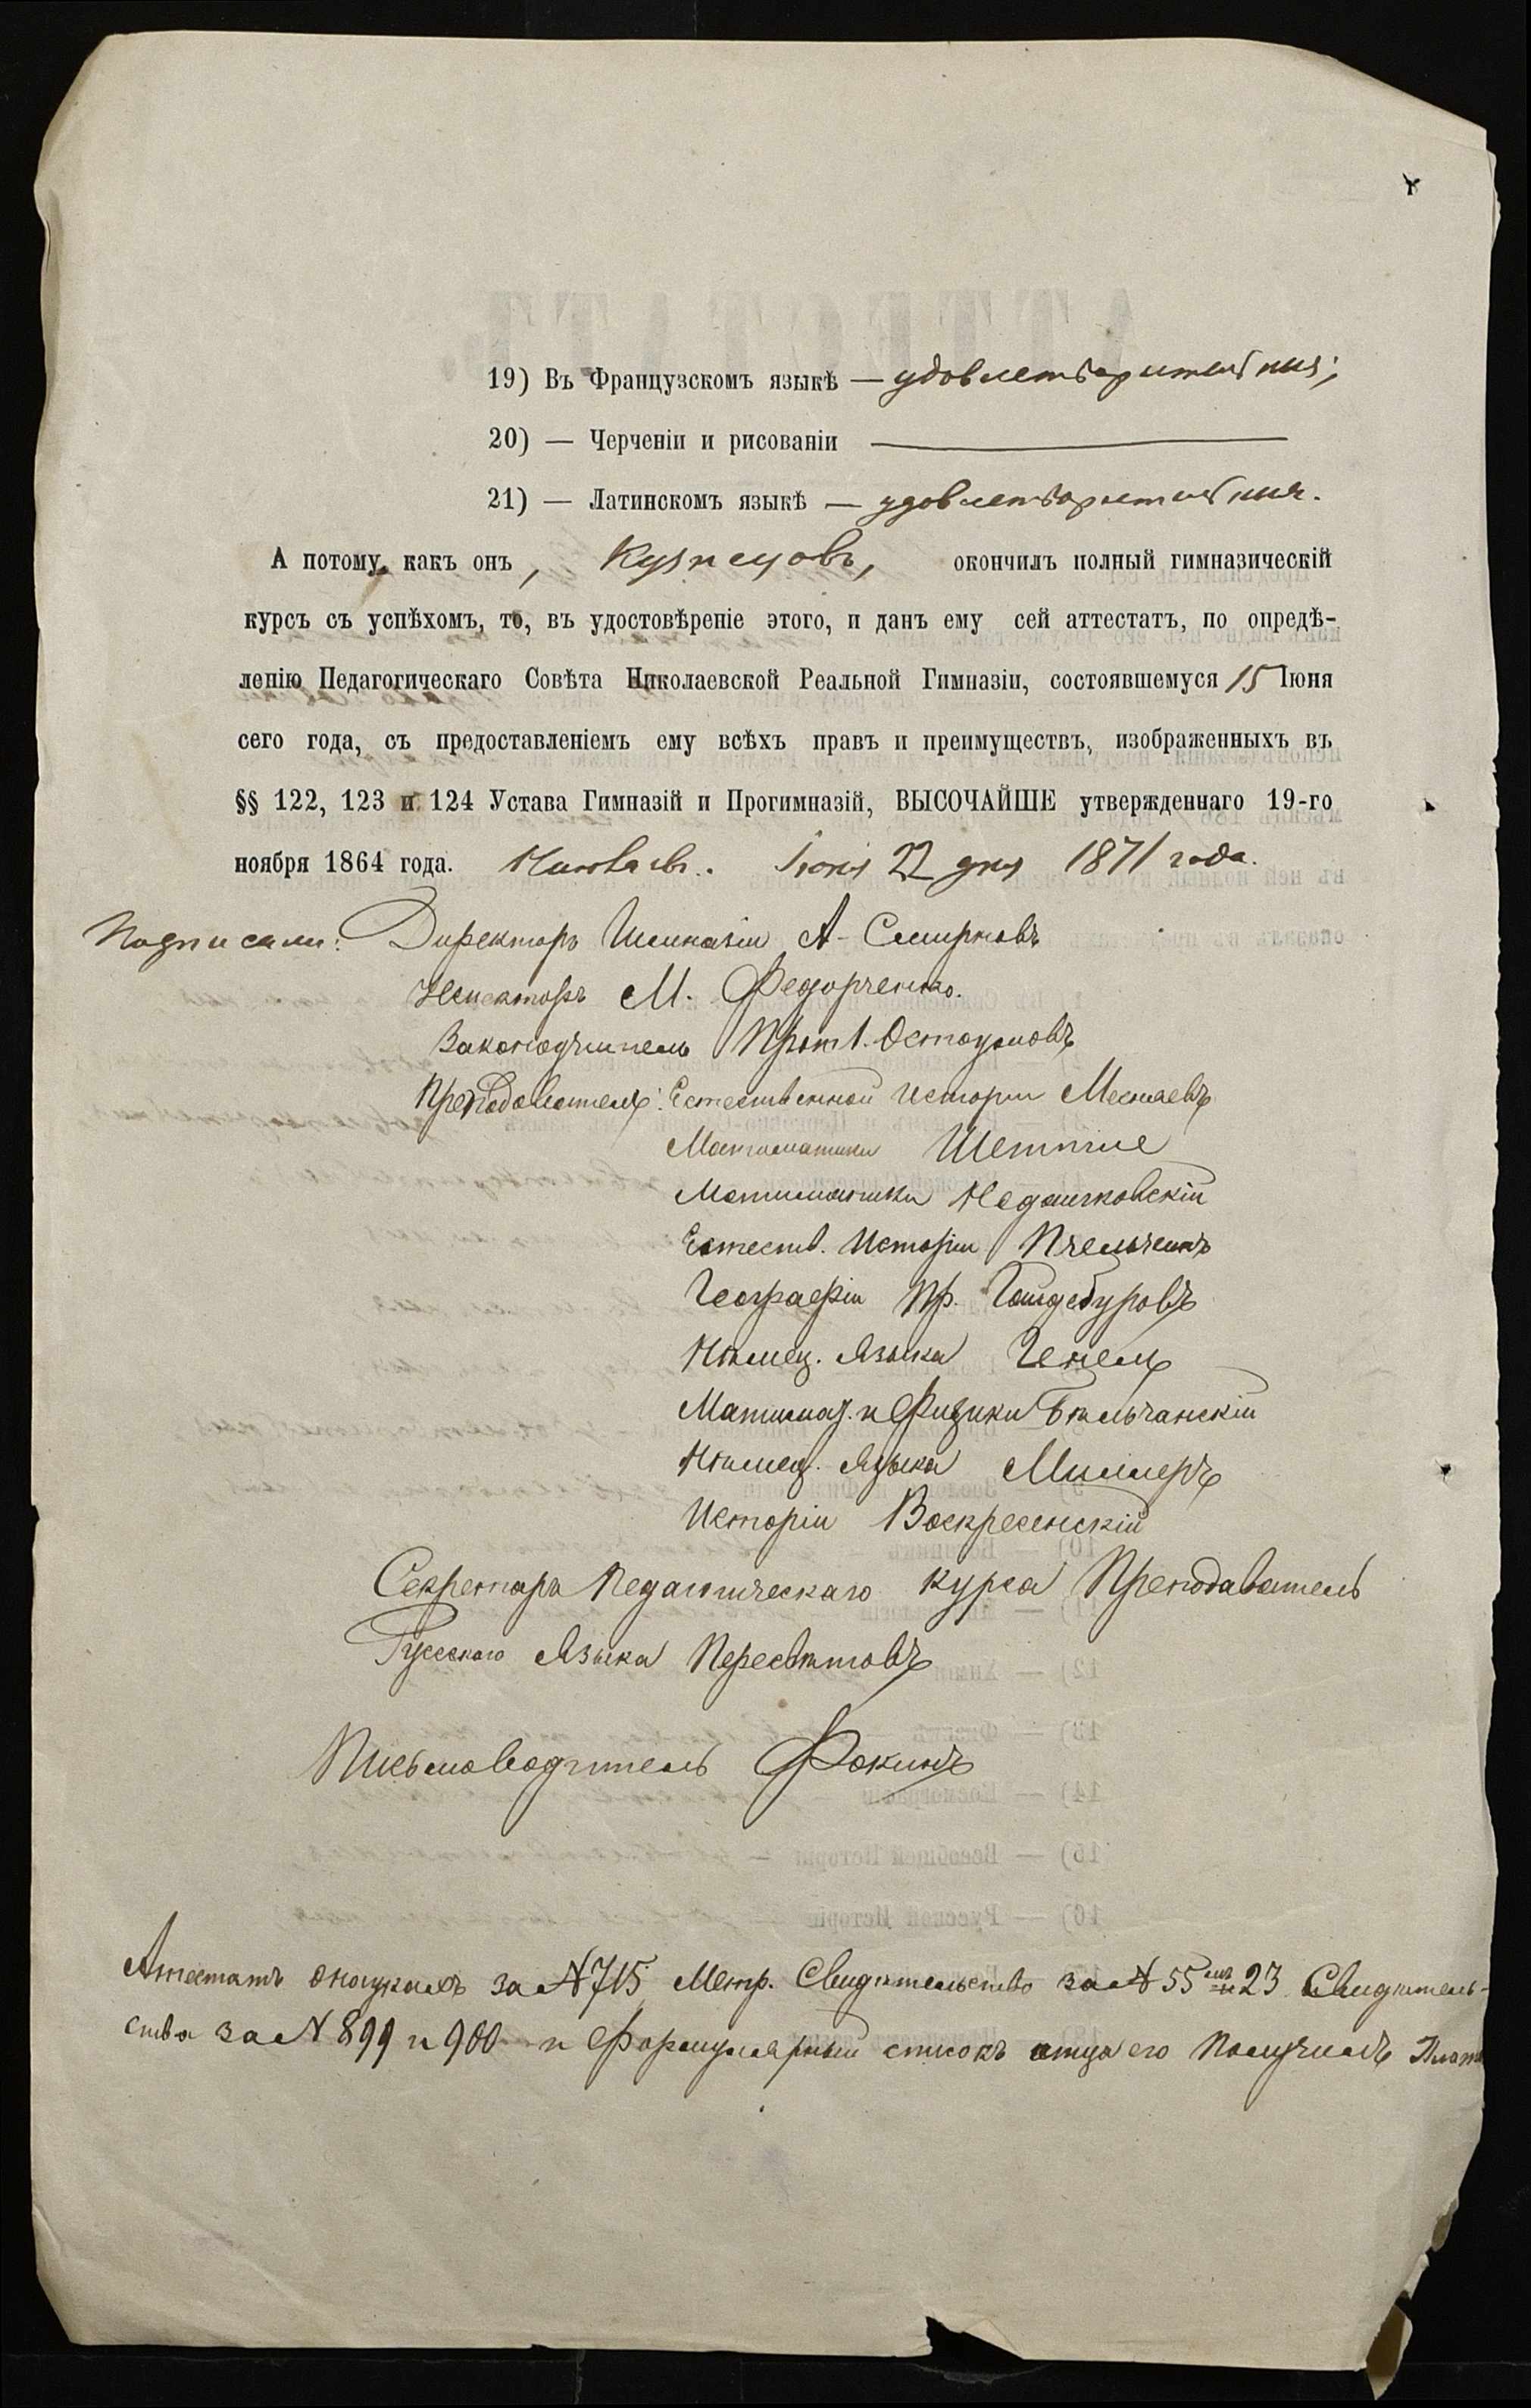 19) Въ Французскомъ языкѣ — удовлетворительныя;
20) — Черченіи и рисованіи —
21) — Латинскомъ языкѣ — удовлетворительныя.
А потому, какъ онъ, Кузнецовъ, окончилъ полный гимназическій
курсъ съ успѣхомъ, то, въ удостовѣреніе этого, и данъ ему сей аттестатъ, по опредѣ-
ленію Педагогическаго Совѣта Николаевской Реальной Гимназіи, состоявшемуся 15 Іюня
сего года, съ предоставленіемъ ему всѣхъ правъ и преимуществъ, изображенныхъ въ
§§ 122, 123 и 124 Устава Гимназій и Прогимназій, ВЫСОЧАЙШЕ утвержденнаго 19-го
ноября 1864 года. Николаевъ. Іюня 22 дня 1871 года.
Подписали: Директоръ Гимназіи А. Смирновъ
Инспекторъ М. Федорченко.
Законоучитель Прот.
Преподаватели: Естественной Исторіи
Математики
Математики
Естеств. Исторіи
Географіи Пр. Гайдебуровъ
Нѣмец. Языка
Математ. и Физики Бѣльчанскій
Нѣмец. Языка Миллеръ
Исторіи Воскресенскій
Секретарь Педагогическаго курса Преподаватель
Русскаго Языка Пересвѣтовъ
Письмоводитель Фокинъ
Атестатъ за № 715 Метр. Свидѣтельство за № 55 23 Свидѣтель-
ства за № 899 и 900 и Формулярный списокъ отца его Получилъ